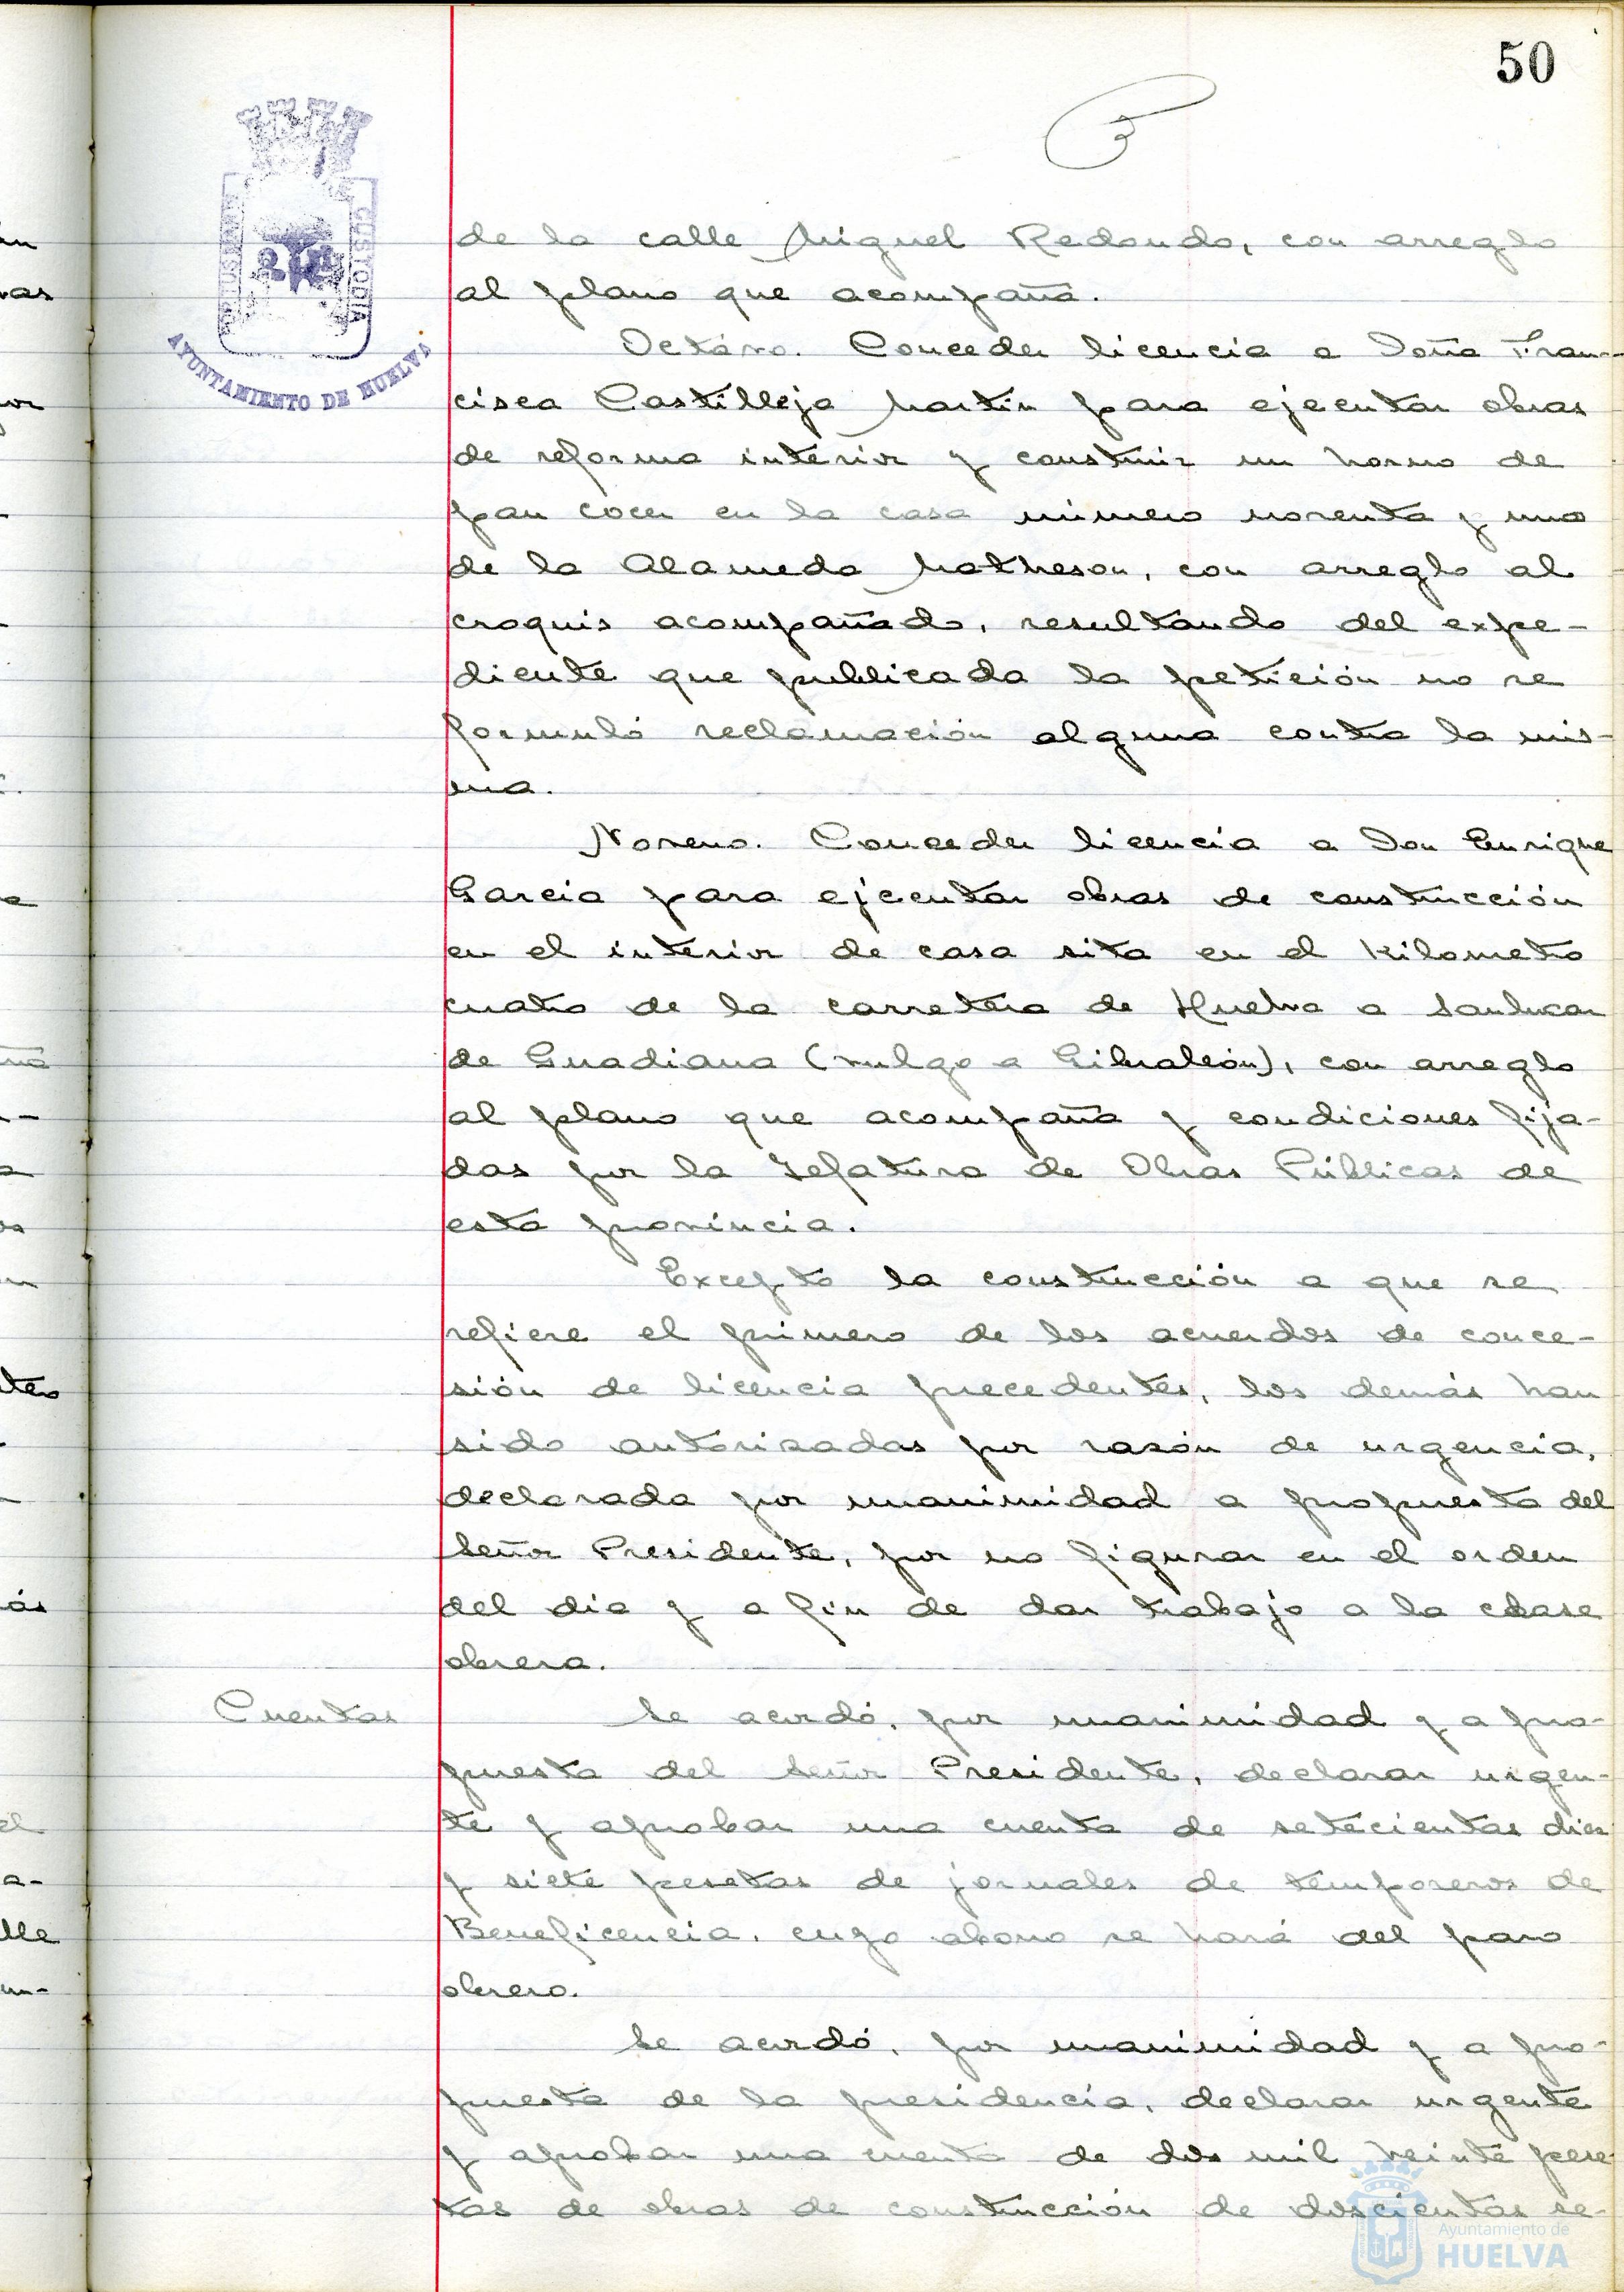 50
de la calle Miguel Redondo, con arreglo
al plano que acompaña.
Octávo. Conceder licencia a Doña Fran-
cisca Castilleja Martín para ejecutar obras
de reforma interior y construir un horno de
pan cocer en la casa número noventa y uno
de la Alameda Matheson, con arreglo al
croquis acompañado, resultando del expe-
diente que publicada la petición no se
formuló reclamación alguna contra la mis-
ma.
Noveno. Conceder licencia a Don Enrique
Garcia para ejecutar obras de construcción
en el interior de casa sita en el kilometro
cuatro de la carretera de Huelva a Sanlucar
de Guadiana (vulgo a Gibraleón), con arreglo
al plano que acompaña y condiciones fija-
das por la Jefatura de Obras Públicas de
esta provincia.
Excepto la construcción a que se
refiere el primero de los acuerdos de conce-
sión de licencia precedentes, los demás han
sido autorizadas por razón de urgencia,
declarada por unanimidad a propuesta del
Señor Presidente, por no figurar en el orden
del dia y a fin de dar trabajo a la clase
obrera.
Cuentas
Se acordó, por unanimidad y a pro-
puesta del Señor Presidente, declarar urgen-
te y aprobar una cuenta de setecientas diez
y siete pesetas de jornales de temporeros de
Beneficencia, cuyo abono se hará del paro
obrero.
Se acordó, por unanimidad y a pro-
puesta de la presidencia, declarar urgente
y aprobar una cuenta de dos mil veinte pese-
tas de obras de construcción de doscientas se-
AYUNTAMIENTO DE HUELVA
CUSTODIA
Ayuntamiento de
HUELVA